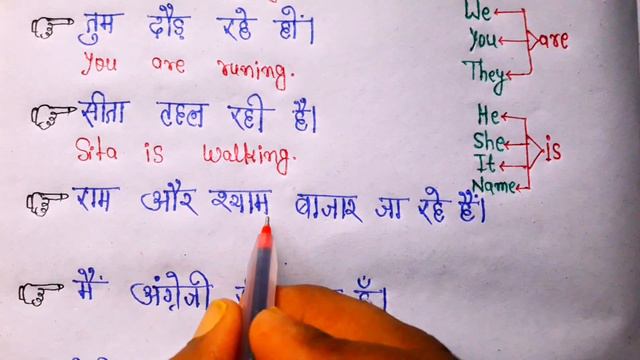 तुम दौड़ रहे हो।
You are runing.
सीता टहल रही है।
Sita is walking.
राम और श्याम बाजार जा रहे हैं।
मैं अंग्रेजी हूँ।
We
You
They
are
He
She
It
Name
is